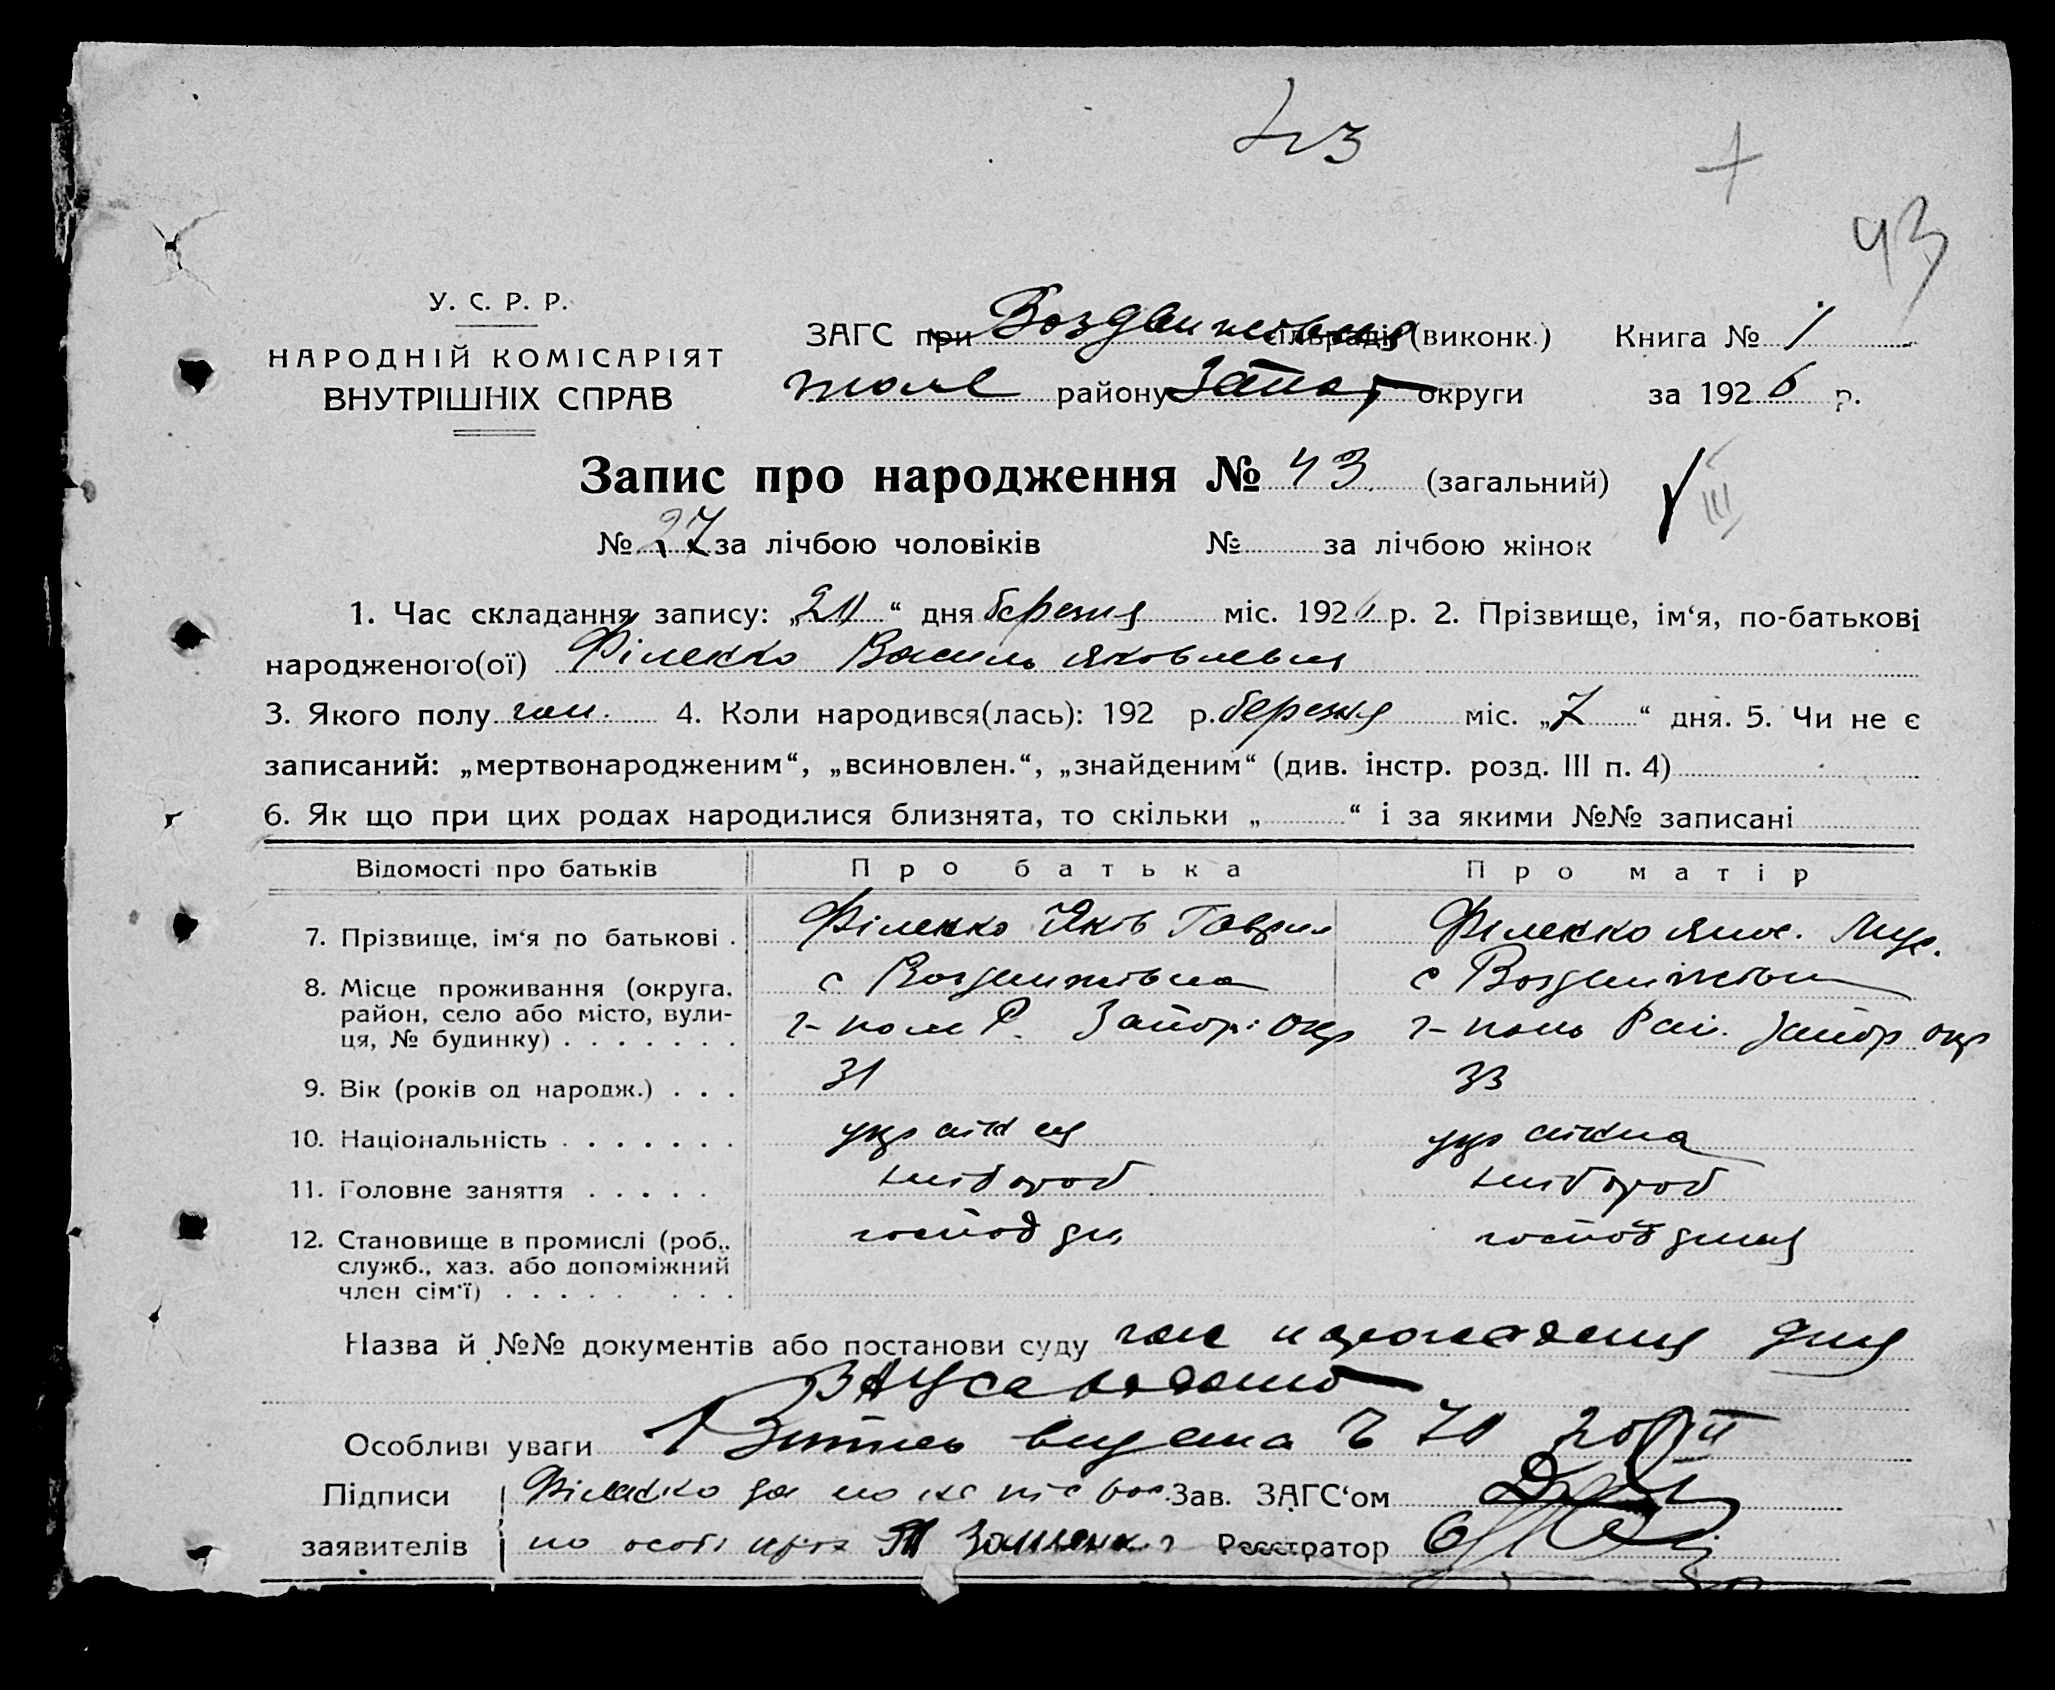 43
43
У. С. Р. Р.
НАРОДНІЙ КОМІСАРІЯТ
ВНУТРІШНІХ СПРАВ
ЗАГС при Воздвижівка сільраді (виконк.) Книга № 1
району Запор округи за 1926 р.
Запис про народження № 43 (загальний)
№ 27 за лічбою чоловіків № за лічбою жінок
1. Час складання запису: „20“ дня березня міс. 1926 р. 2. Прізвище, ім‘я, по-батькові
народженого(ої) Філекко Василь Яковлевич
3. Якого полу чол. 4. Коли народився(лась): 192 р. березня міс. „7“ дня. 5. Чи не є
записаний: „мертвонародженим“, „всиновлен.“, „знайденим“ (див. інстр. розд. III п. 4)
6. Як що при цих родах народилися близнята, то скільки „ “ і за якими №№ записані
Відомості про батьків Про батька Про матір
7. Прізвище, ім‘я по батькові . Філекко Яків Гаврил Філекко
8. Місце проживання (округа, с Воздвижівка с Воздвижівка
район, село або місто, вули-
ця, № будинку) . . . . . . . г-поле Р. Запор: окр г-поль Рай. Запор окр
9. Вік (років од народж.) . . . 31 33
10. Національність . . . . . . . українец українка
11. Головне заняття . . . . . хлібороб хлібороб
12. Становище в промислі (роб., господар господиня
служб., хаз. або допоміжний
член сім‘ї) . . . . . . . .
Назва й №№ документів або постанови суду
Особливі уваги Витяг видана
Підписи Філекко Зав. ЗАГС‘ом
заявителів по Реєстратор